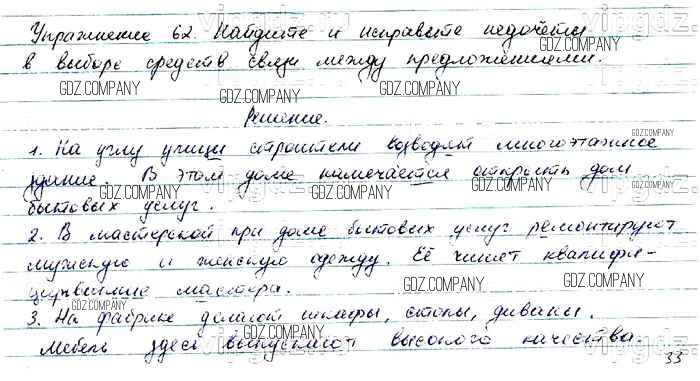 Упражнение 62. Найдите и исправьте недочёты
в выборе средств связи между предложениями.
Решение.
1. На углу улицы строители возводят многоэтажное
здание. В этом доме намечается открыть дом
бытовых услуг.
2. В мастерской при доме бытовых услуг ремонтируют
мужскую и женскую одежду. Её чинят квалифи-
цированные мастера.
3. На фабрике делают шкафы, столы, диваны.
Мебель здесь выпускают высокого качества.
33
GDZ.COMPANY
GDZ.COMPANY
GDZ.COMPANY
GDZ.COMPANY
GDZ.COMPANY
GDZ.COMPANY
GDZ.COMPANY
GDZ.COMPANY
GDZ.COMPANY
GDZ.COMPANY
GDZ.COMPANY
GDZ.COMPANY
GDZ.COMPANY